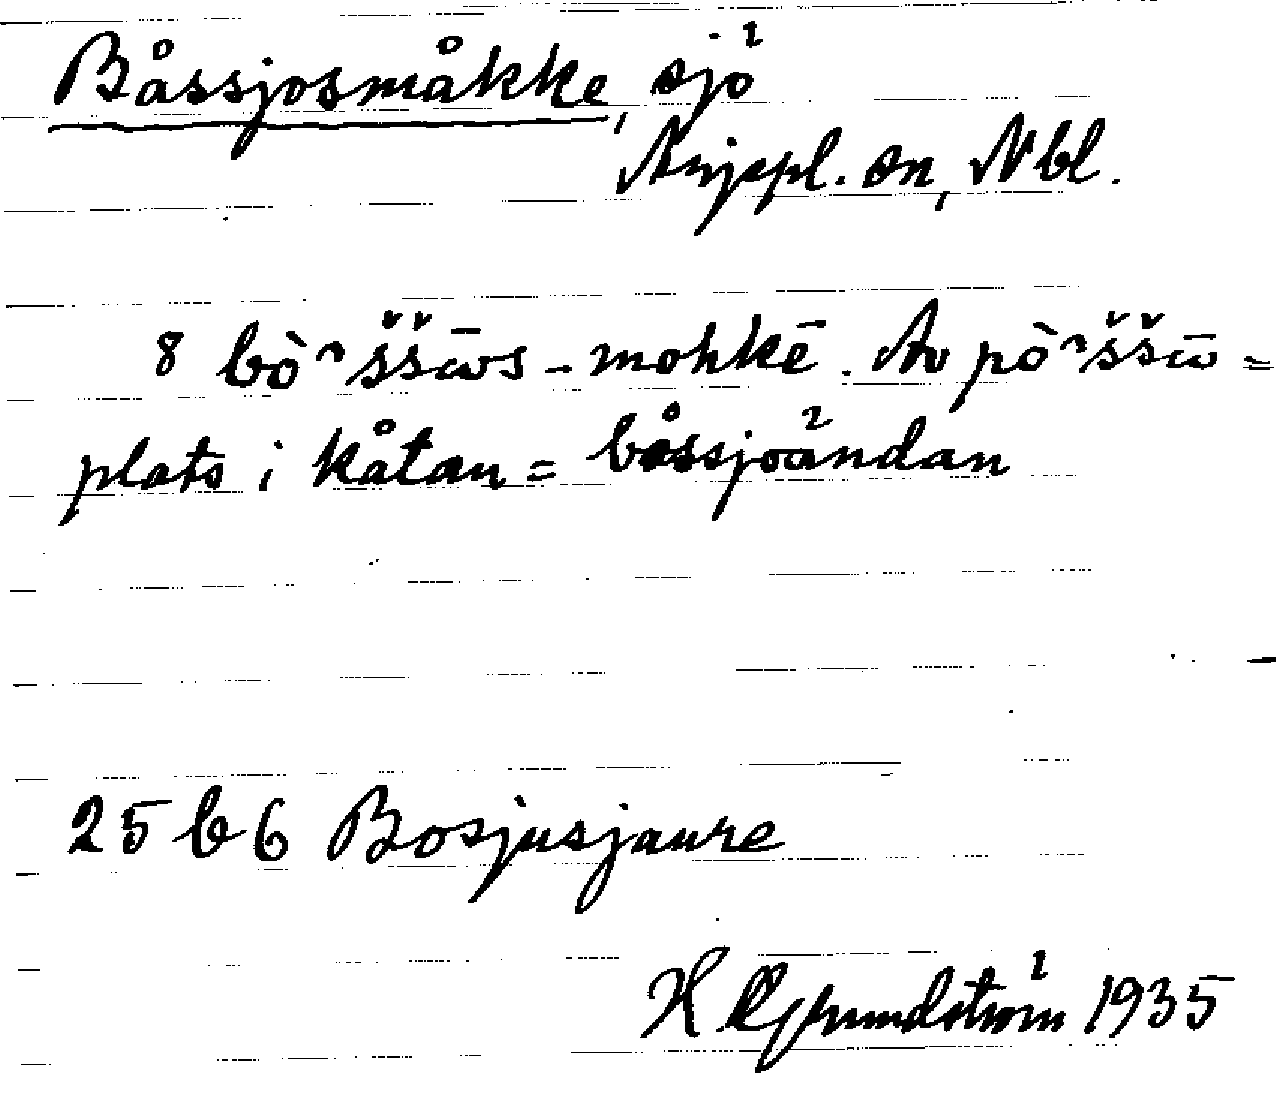 Båssjosmåkke, sjö
Arjepl. sn, Nbl.
8 bò᷉ššω̄s-mohkē. Av pò᷉ššω̄ =
plats i kåtan = båssjoändan
25 b 6 Bosjusjaure
H Grundström 1935